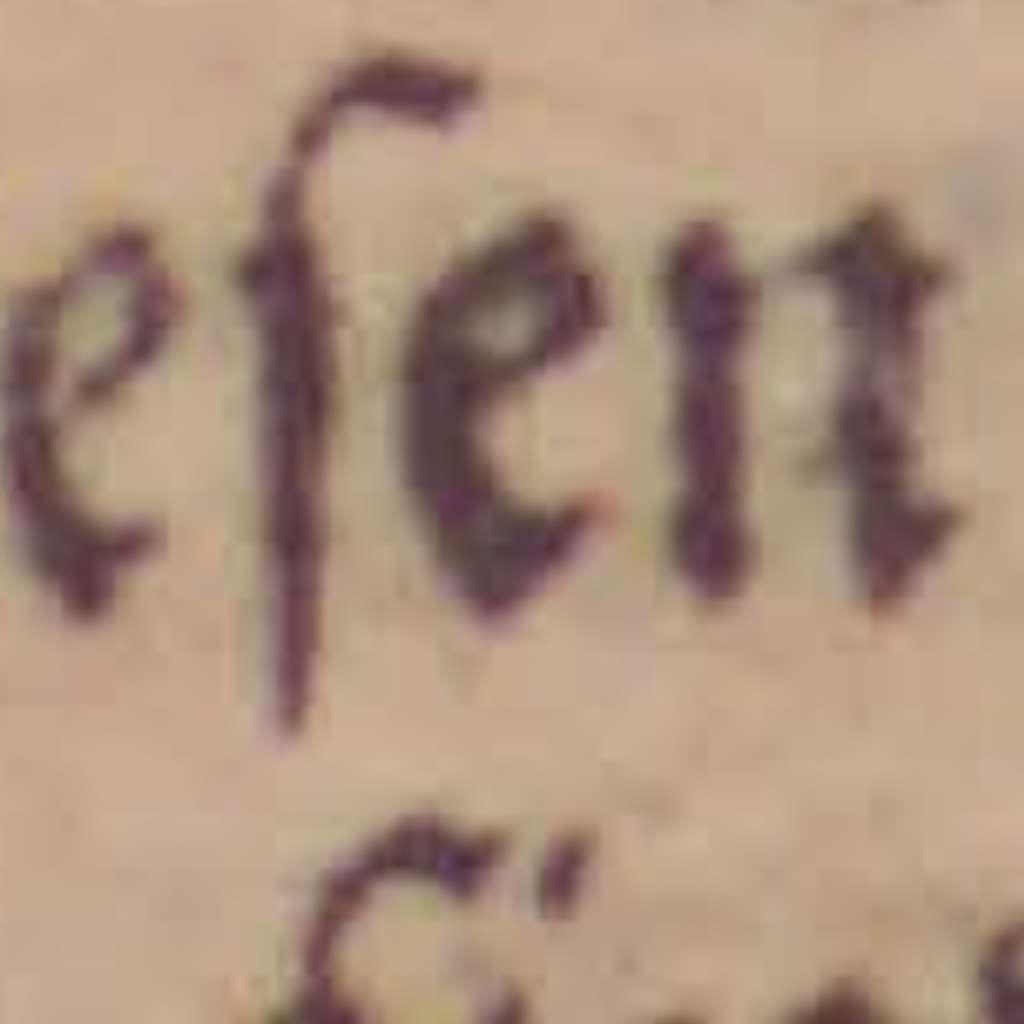 eſen